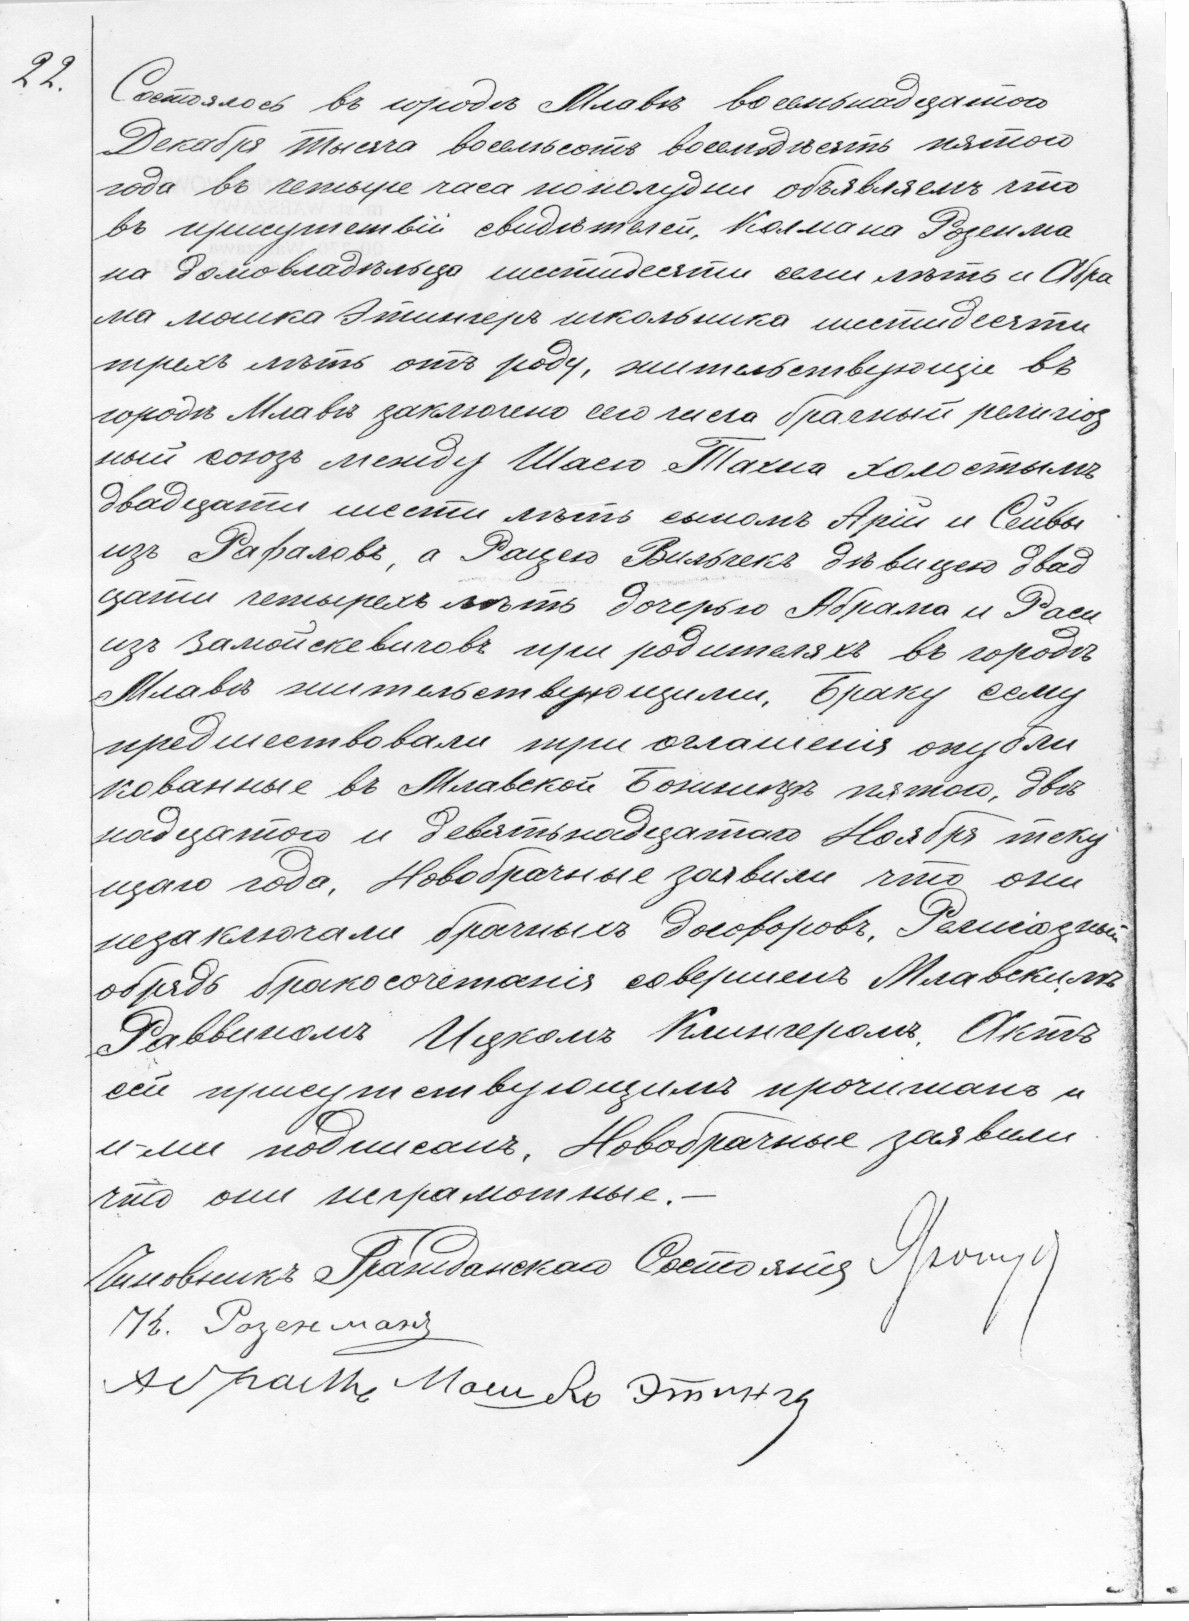 22.
Состоялось въ городѣ Млавѣ восемьнадцатого
Декабря тысяча восемьсотъ восемдѣсятъ пятого
года въ четыре часа пополудни объявляемъ что
въ присутствіи свидѣтелей, Колмана Розенма
на домовладѣльца шестидесяти семи лѣтъ и Абра
ма Мошка Этингеръ школьника шестидесяти
трехъ лѣтъ отъ роду, жительствующіе въ
городѣ Млавѣ заключено сего числа брачный религіоз
ный союзъ между Шаею Тахна холостымъ
двадцати шести лѣтъ сыномъ Арій и Сейвы
изъ Рафаловъ, а Рацею Вильчекъ дѣвицею двад
цати четырехъ лѣтъ дочерью Абрама и Раси
изъ Замойскевичовъ при родителяхъ въ городѣ
Млавѣ жительствующими. Браку сему
предшествовали три оглашенія опубли
кованные въ Млавской Божницѣ пятого, двѣ
надцатого и девятьнадцатаго Ноября теку
щаго года. Новобрачные заявили что они
незаключали брачныхъ договоровъ. Религіозный
обрядъ бракосочетанія совершенъ Млавскимъ
Раввиномъ Ицкомъ Клингеромъ. Актъ
сей присутствующимъ прочитанъ и
и-ми подписанъ. Новобрачные заявили
что они неграмотные.—
Чиновникъ Гражданскаго Состоянія
К. Розенманъ
Абрамъ Мошко Этинге